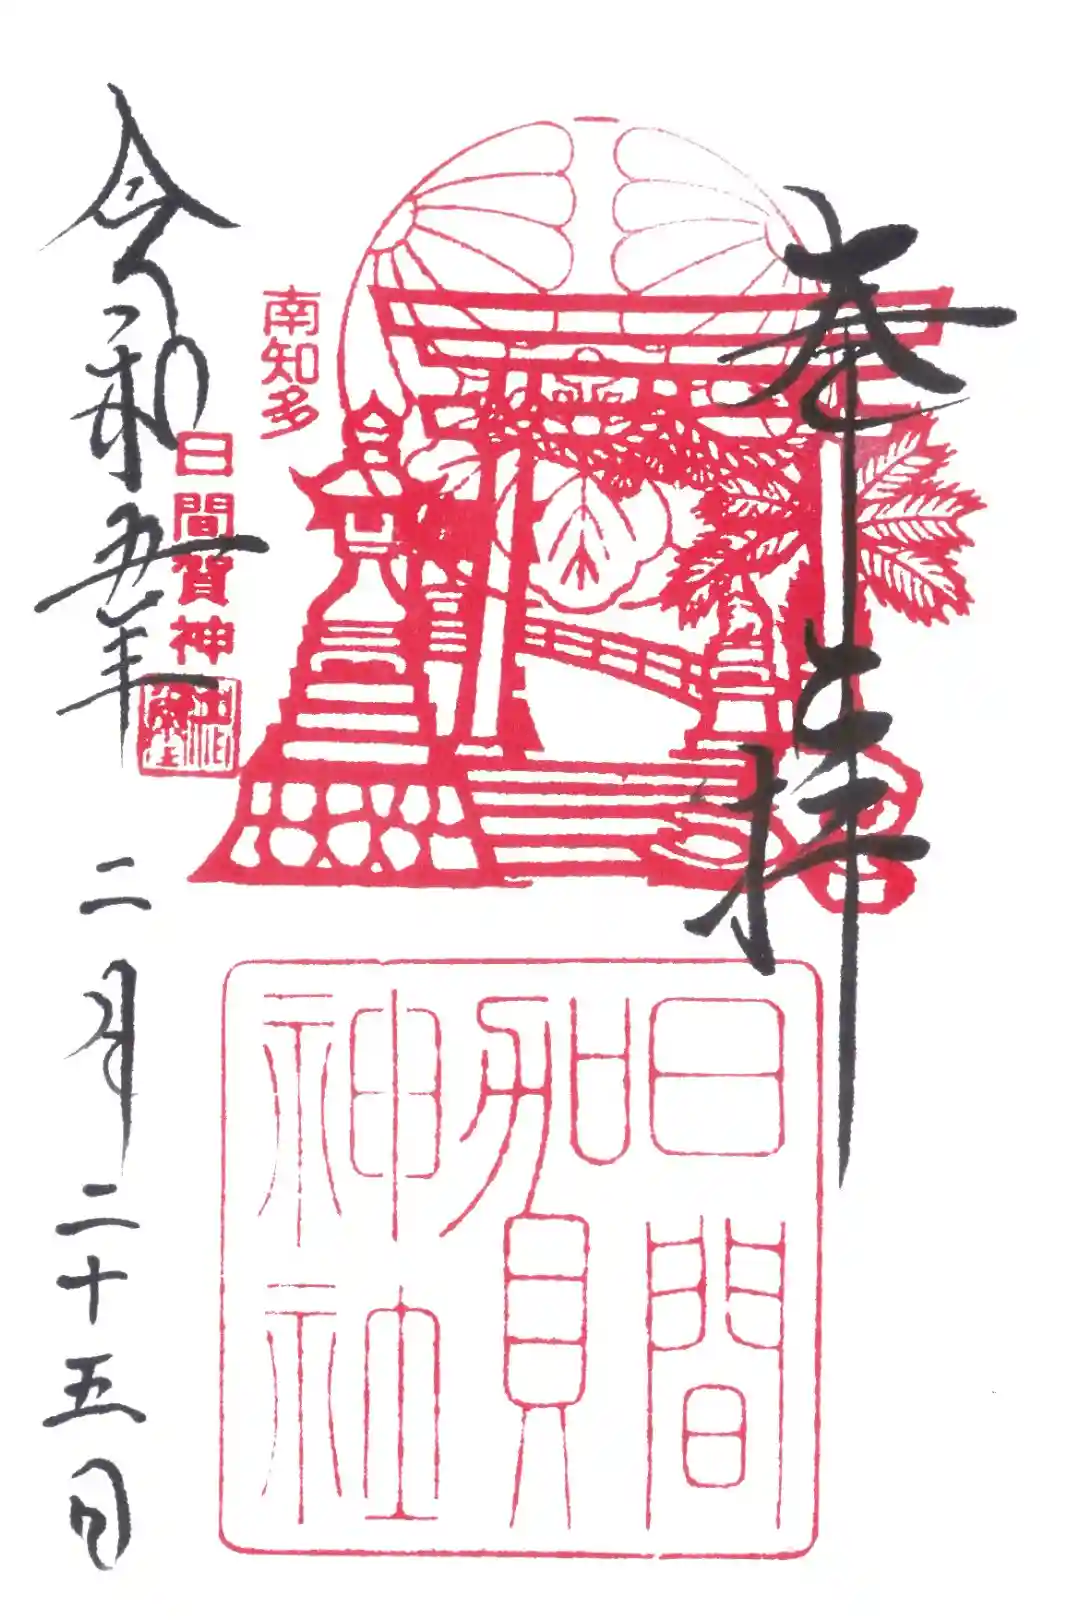 奉拝
南知多
日間賀神社
日間賀神社
令和五年二月二十五日